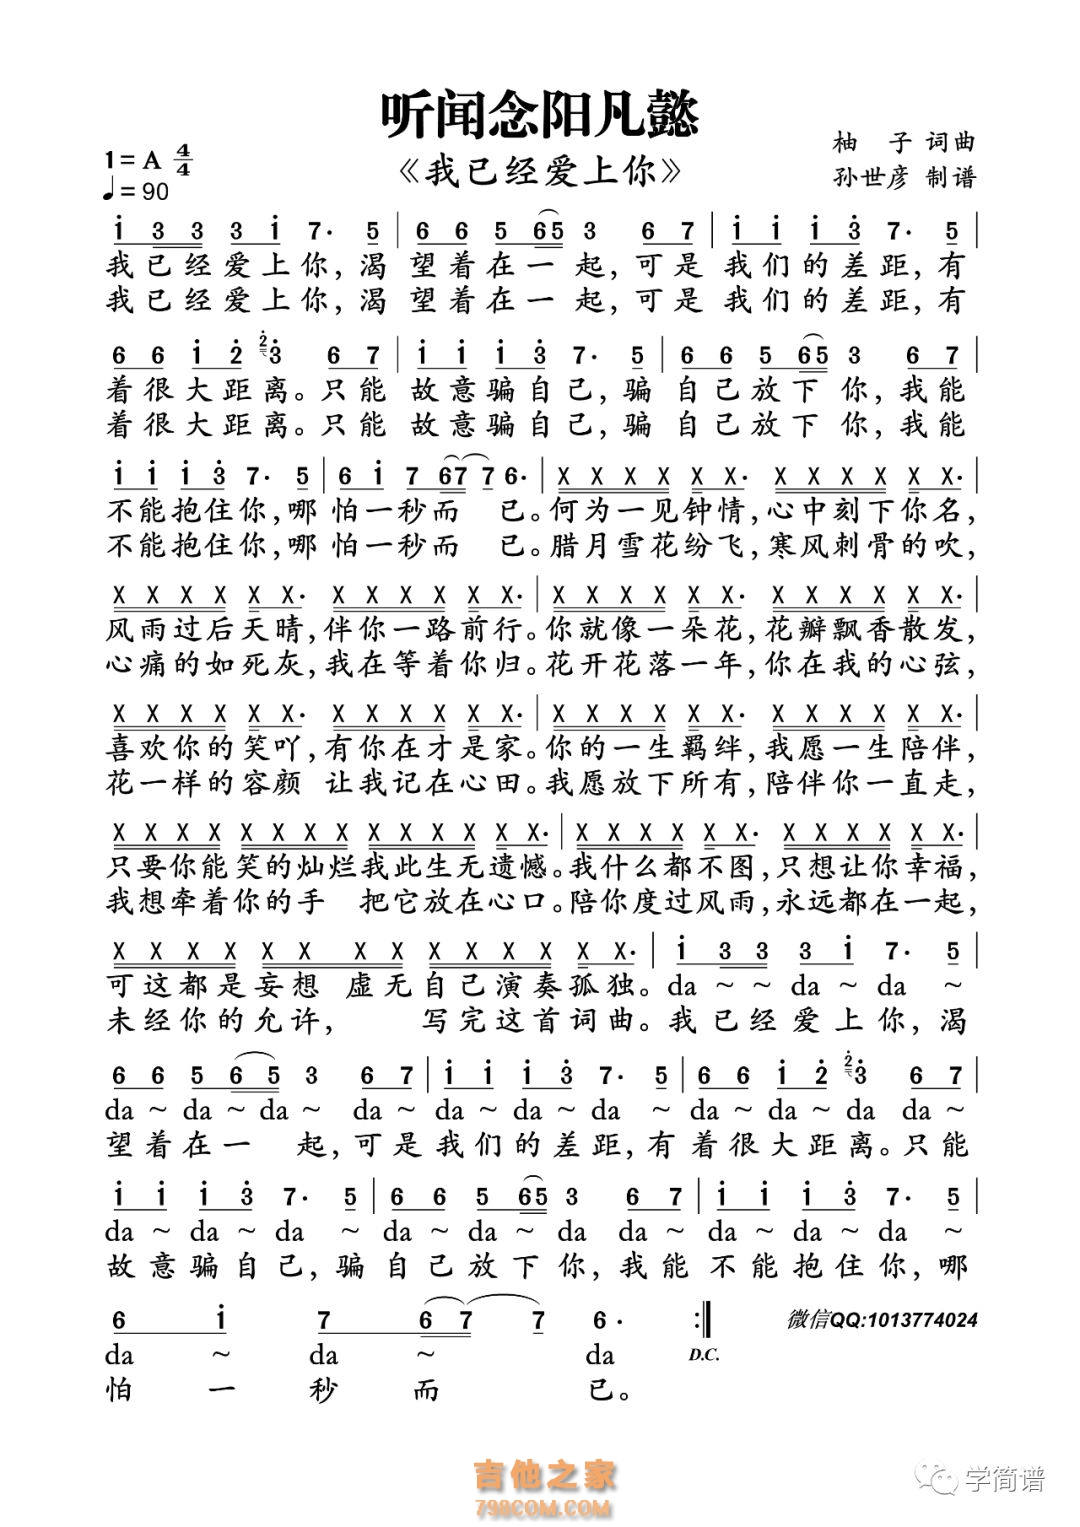 听闻念阳凡懿
1=A 4/4
《我已经爱上你》
柚 子 词曲
♩=90
孙世彦 制谱
i 3 3 3 i 7· 5 | 6 6 5 6 5 3 6 7 | i i i 3 7· 5 |
我已经爱上你,渴 望着在一起,可是 我们的差距,有
我已经爱上你,渴 望着在一起,可是 我们的差距,有
6 6 i 2 2 3 6 7 | i i i 3 7· 5 | 6 6 5 6 5 3 6 7 |
着很大距离。只能 故意骗自己,骗 自己放下你,我能
着很大距离。只能 故意骗自己,骗 自己放下你,我能
i i i 3 7· 5 | 6 i 7 6 7 7 6· | X X X X X X· X X X X X X· |
不能抱住你,哪 怕一秒而 已。何为一见钟情,心中刻下你名,
不能抱住你,哪 怕一秒而 已。腊月雪花纷飞,寒风刺骨的吹,
X X X X X X· X X X X X X· | X X X X X X· X X X X X X· |
风雨过后天晴,伴你一路前行。你就像一朵花,花瓣飘香散发,
心痛的如死灰,我在等着你归。花开花落一年,你在我的心弦,
X X X X X X· X X X X X X· | X X X X X X· X X X X X X· |
喜欢你的笑吖,有你在才是家。你的一生羁绊,我愿一生陪伴,
花一样的容颜 让我记在心田。我愿放下所有,陪伴你一直走,
X X X X X X X X X X X X X X· | X X X X X X· X X X X X X· |
只要你能笑的灿烂我此生无遗憾。我什么都不图,只想让你幸福,
我想牵着你的手 把它放在心口。陪你度过风雨,永远都在一起,
X X X X X X X X X X X X X X· | i 3 3 3 i 7· 5 |
可这都是妄想 虚无自己演奏孤独。da ~ ~ da ~ da ~
未经你的允许, 写完这首词曲。我已经爱上你,渴
6 6 5 6 5 3 6 7 | i i i 3 7· 5 | 6 6 i 2 2 3 6 7 |
da ~ da ~ da ~ da ~ da ~ da ~ da ~ da ~ da ~ da da ~
望着在一 起,可是我们的差距,有着很大距离。只能
i i i 3 7· 5 | 6 6 5 6 5 3 6 7 | i i i 3 7· 5 |
da ~ da ~ da ~ da ~ da ~ da da ~ da ~ da ~ da ~
故意骗自己,骗自己放下你,我能不能抱住你,哪
6 i 7 6 7 7 6· :‖ 微信QQ:1013774024
da ~ da ~ da D.C.
怕一秒而 已。
吉他之家
798COM.COM
学简谱